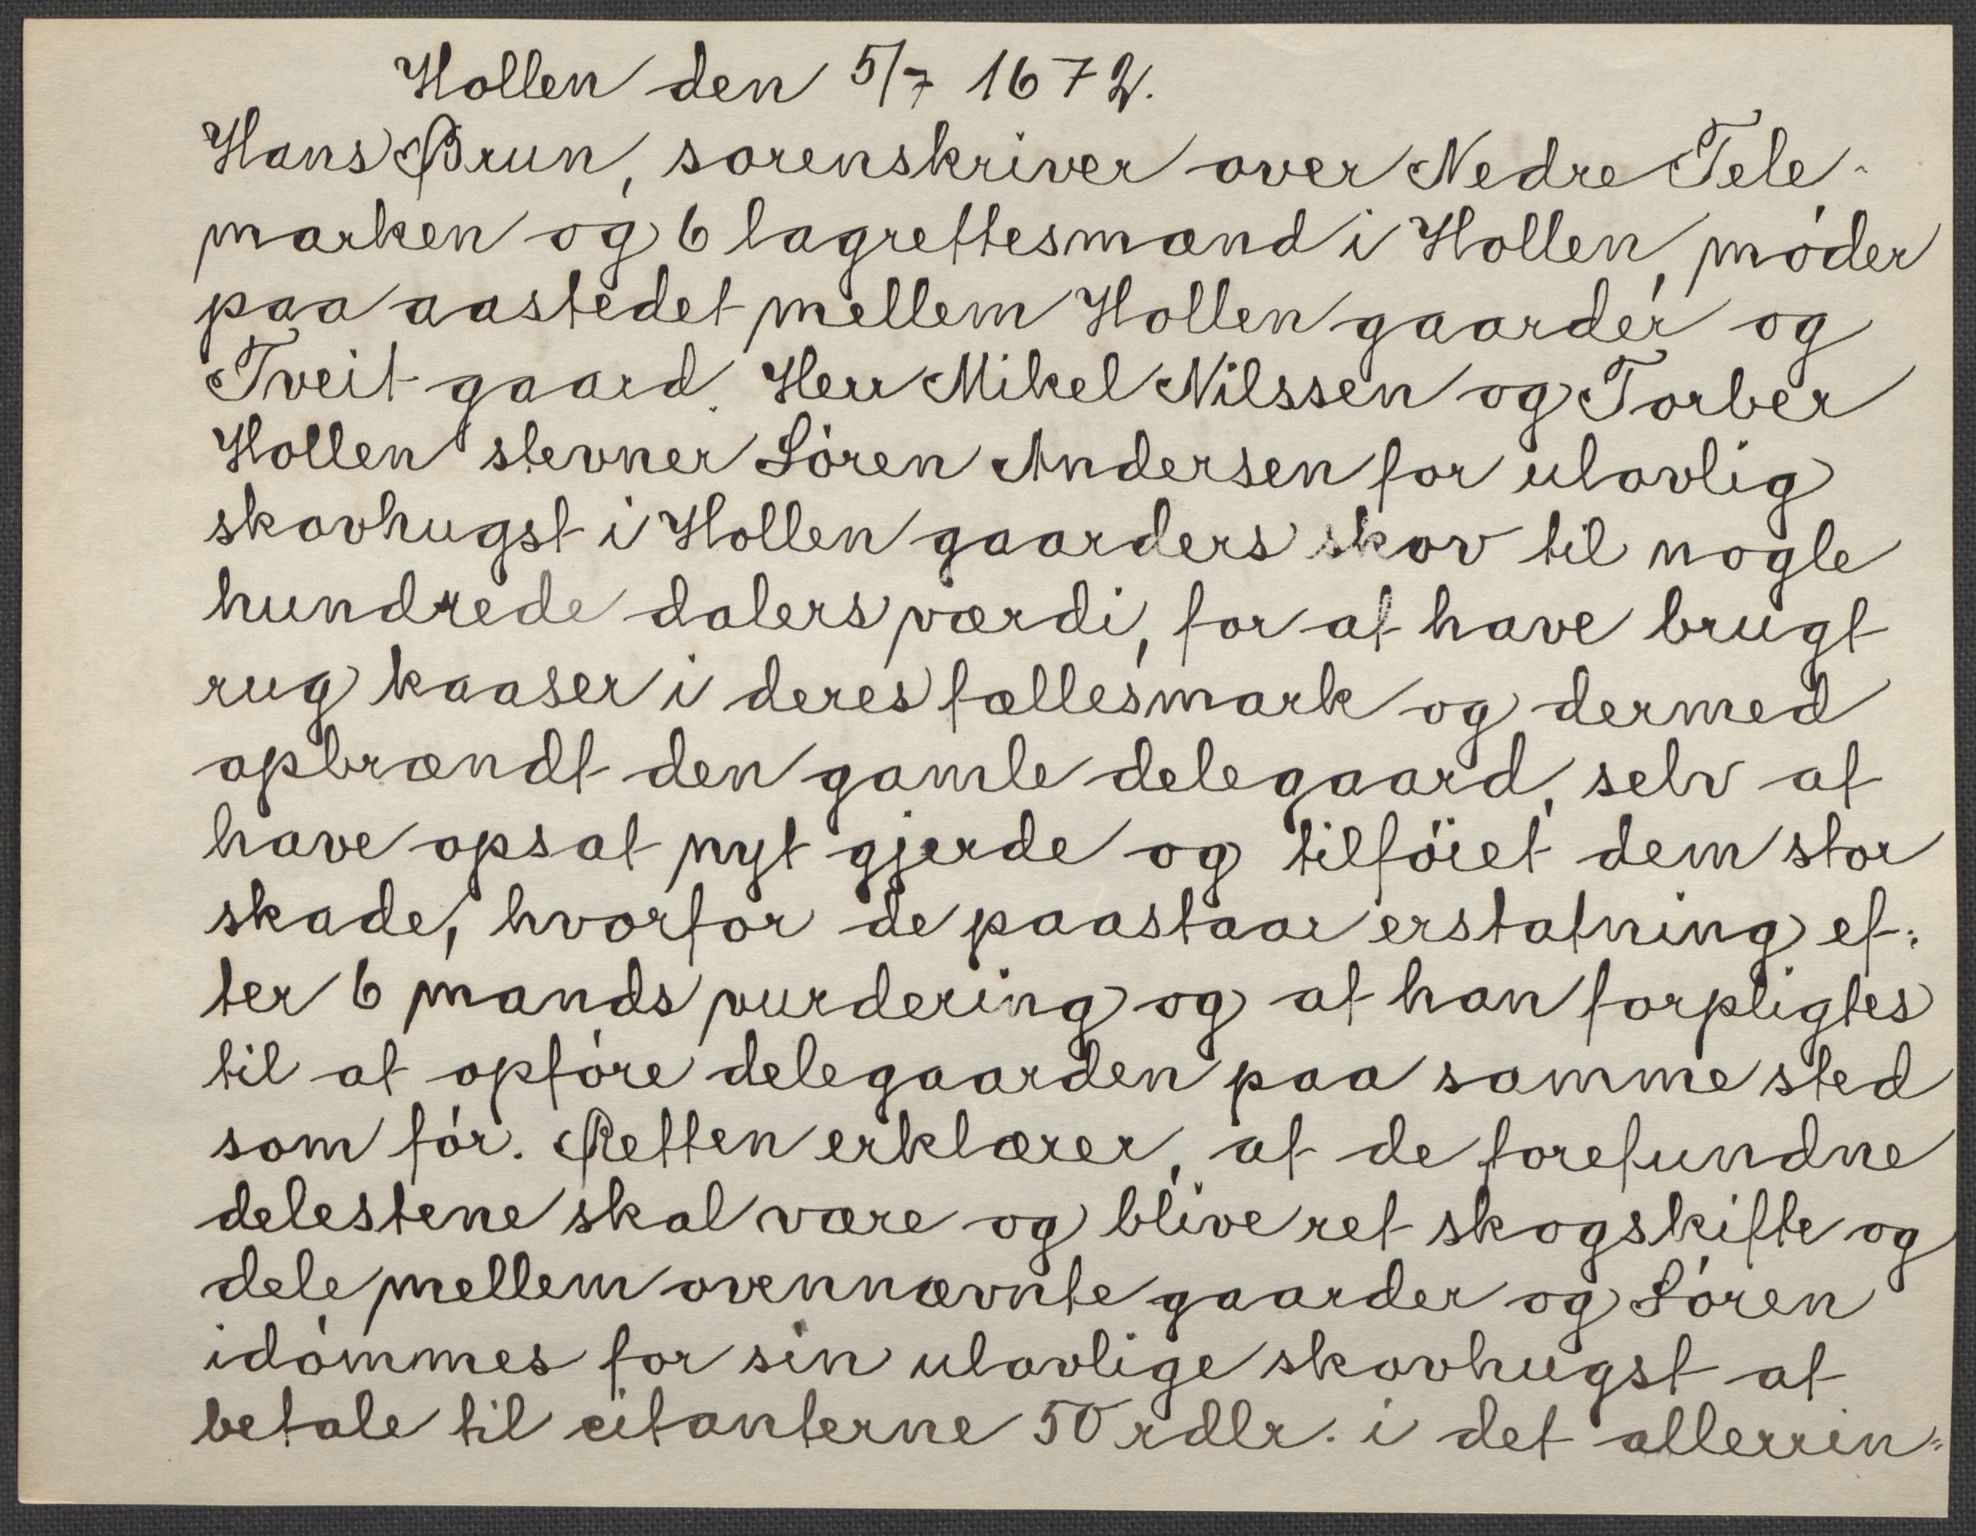 Hollen den 5/7 1672.
Hans Brun, sorenskriver over Nedre Tele-
marken og 6 lagrettesmænd i Hollen, móder
paa aastedet mellem Hollen gaarder og
Tveit gaard. Herr Mikel Nilssen og Torber
Hollen stevner Sóren Andersen for ulovlig
skovhugst i Hollen gaarders skov til nogle
hundrede dalers værdi, for at have brugt
rug kaaser i deres fællesmark og dermed
opbrændt den gamle delegaard, selv at
have opsat nyt gjerde og tilföiet dem stor
skade, hvorfor de paastaar erstatning ef-
ter 6 mands vurdering og at han forpligtes
til at opfóre delegaarden paa samme sted
som fór. Retten erklærer, at de forefundne
delestene skal være og blive ret skogskifte og
dele mellem ovennævnte gaarder og Sóren
idómmes for sin ulovlige skovhugst at
betale til citanterne 50 rdlr. i det allerrin=